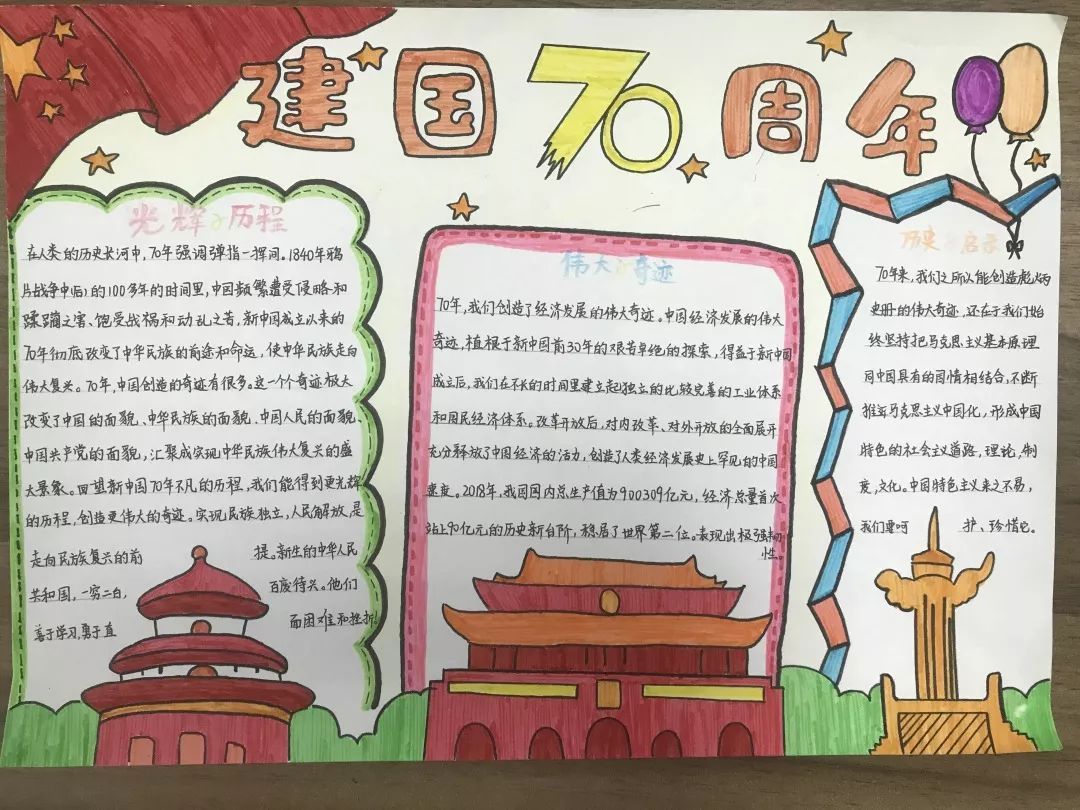 建国70周年
光辉的历程
在人类的历史长河中,70年强调弹指一挥间。1840年鸦
片战争中(后)的100多年的时间里,中国频繁遭受侵略和
蹂躏之害、饱受战祸和动乱之苦,新中国成立以来的
70年彻底改变了中华民族的前途和命运,使中华民族走向
伟大复兴。70年,中国创造的奇迹有很多。这一个个奇迹极大
改变了中国的面貌、中华民族的面貌、中国人民的面貌、
中国共产党的面貌,汇聚成实现中华民族伟大复兴的盛
大景象。回望新中国70年不凡的历程,我们能得到更光辉
的历程,创造更伟大的奇迹。实现民族独立,人民解放,是
走向民族复兴的前 提。新生的中华人民
共和国,一穷二白, 百废待兴。他们
善于学习,勇于直 面困难和挫折!
伟大的奇迹
70年,我们创造了经济发展的伟大奇迹。中国经济发展的伟大
奇迹,植根于新中国前30年的艰苦卓绝的探索,得益于新中国
成立后,我们在不长的时间里建立起独立的比较完善的工业体系
和国民经济体系。改革开放后,对内改革、对外开放的全面展开
充分释放了中国经济的活力,创造了人类经济发展史上罕见的中国
速度。2018年,我国国内总生产值为900309亿元,经济总量首次
站上90亿元的历史新台阶,稳居了世界第二位。表现出极强韧
性。
历史的启示
70年来,我们之所以能创造彪炳
史册的伟大奇迹,还在于我们始
终坚持把马克思主义基本原理
同中国具有的国情相结合,不断
推运马克思主义中国化,形成中国
特色的社会主义道路,理论,制
度,文化。中国特色主义来之不易,
我们要呵 护、珍惜它。